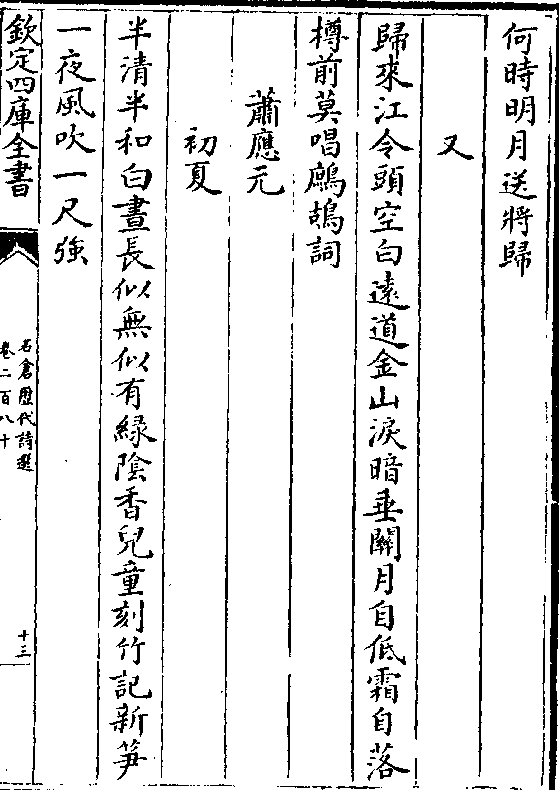 何時明月送將歸
又
歸來江令頭空白遠道金山淚暗垂關月自低霜自落
樽前莫唱鷓鴣詞
蕭應元
初夏
半清半和白晝長似無似有緑陰香兒童刻竹記新笋
一夜風吹一尺強
欽定四庫全書
石倉歷代詩選
卷二百八十
十三